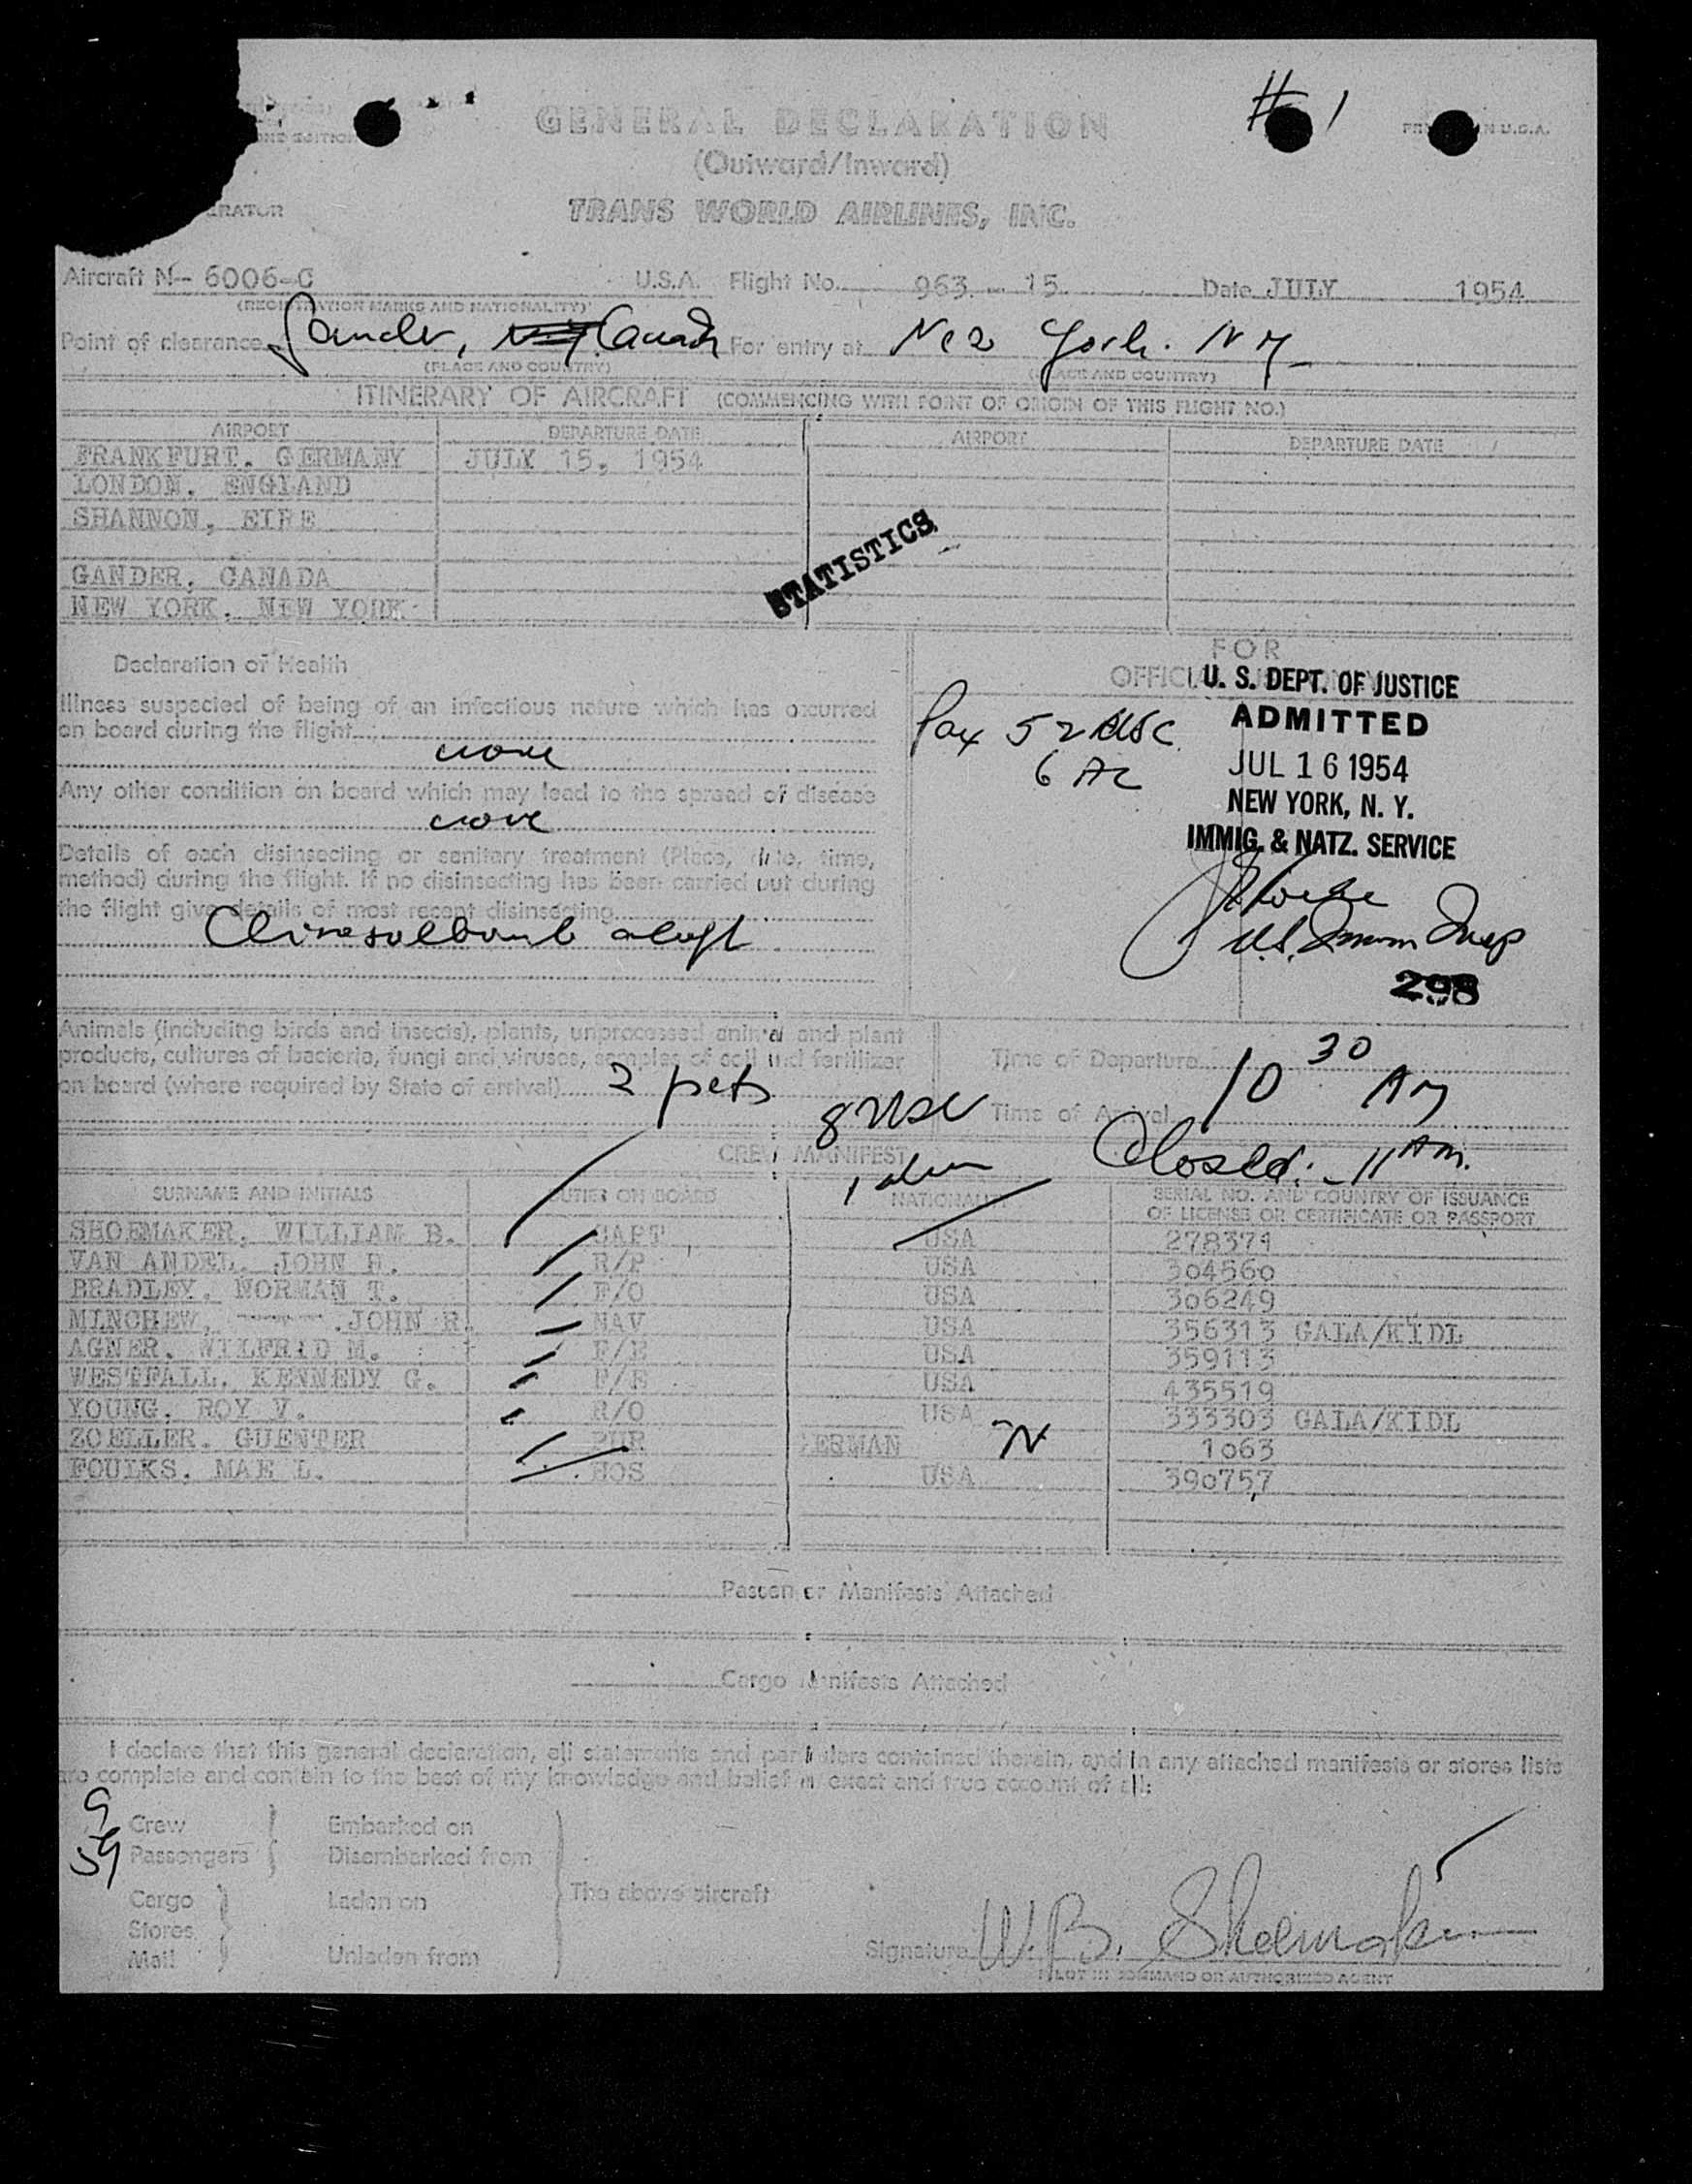 #1
GENERAL DECLARATION
(Outward/Inward)
TRANS WORLD AIRLINES, INC.
Aircraft N-- 6006-C U.S.A. Flight No. 963 - 15 Date JULY 1954
(REGISTRATION MARKS AND NATIONALITY)
Point of clearance Gander, Canada For entry at New York. NY
(PLACE AND COUNTRY) (PLACE AND COUNTRY)
ITINERARY OF AIRCRAFT (COMMENCING WITH POINT OF ORIGIN OF THIS FLIGHT NO.)
AIRPORT DEPARTURE DATE AIRPORT DEPARTURE DATE
FRANKFURT. GERMANY JULY 15, 1954
LONDON, ENGLAND
SHANNON, EIRE
STATISTICS
GANDER, CANADA
NEW YORK, NEW YORK
Declaration of Health
Illness suspected of being of an infectious nature which has occurred
on board during the flight
none
Any other condition on board which may lead to the spread of disease
none
Details of each disinsecting or sanitary treatment (Place, date, time,
method) during the flight. If no disinsecting has been carried out during
the flight give details of most recent disinsecting
FOR
U. S. DEPT. OF JUSTICE
ADMITTED
JUL 16 1954
NEW YORK, N. Y.
IMMIG. & NATZ. SERVICE
Pax 52 USC
6 AC
U.S. Imm Insp
298
Animals (including birds and insects), plants, unprocessed animal and plant
products, cultures of bacteria, fungi and viruses, samples of soil and fertilizer
on board (where required by State of arrival) 2 pets
Time of Departure
Time of Arrival 10 30 AM
Closed: 11 AM.
8 USC
1 alien
CREW MANIFEST
SURNAME AND INITIALS DUTIES ON BOARD NATIONALITY SERIAL NO. AND COUNTRY OF ISSUANCE
OF LICENSE OR CERTIFICATE OR PASSPORT
SHOEMAKER, WILLIAM B. CAPT USA 278374
VAN ANDEL, JOHN H. R/P USA 304560
BRADLEY, NORMAN T. F/O USA 306249
MINCHEW, JOHN R. NAV USA 356313 GALA/KIDL
AGNER, WILFRID M. F/E USA 359113
WESTFALL, KENNEDY G. F/E USA 435519
YOUNG, ROY V. R/O USA 333303 GALA/KIDL
ZOELLER, GUENTER PUR GERMAN N 1063
FOULKS, MAE L. HOS USA 390757
Passenger Manifests Attached
Cargo Manifests Attached
I declare that this general declaration, all statements and particulars contained therein, and in any attached manifests or stores lists
are complete and contain to the best of my knowledge and belief an exact and true account of all:
9 Crew Embarked on
59 Passengers Disembarked from
The above aircraft
Cargo Laden on
Stores
Mail Unladen from
Signature W.B. Shoemaker
PILOT IN COMMAND OR AUTHORIZED AGENT